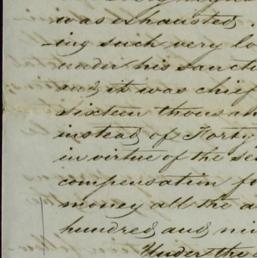 was exhausted.
ing such very lo
under his sanct
and it was chief
sixteen thousan
instead of Forty
in virtue of the se
compensation fo
money all the a
hundred and ni
Under the